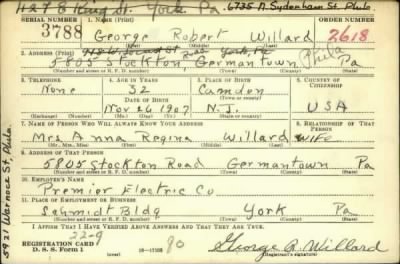 1278 King St. York Pa. 6735 N. Sydenham St. Phila.
SERIAL NUMBER 1. NAME (Print) ORDER NUMBER
3788 George Robert Willard 2618
(First) (Middle) (Last)
2. ADDRESS (Print) York, Pa
5805 Stockton, Road Germantown Phila Pa
(Number and street or R. F. D. number) (Town) (County) (State)
3. TELEPHONE 4. AGE IN YEARS 5. PLACE OF BIRTH 6. COUNTRY OF CITIZENSHIP
None 32 Camden
DATE OF BIRTH (Town or county)
Nov 26 1907 N.J. USA
(Mo.) (Day) (Yr.) (State or country)
7. NAME OF PERSON WHO WILL ALWAYS KNOW YOUR ADDRESS 8. RELATIONSHIP OF THAT PERSON
Mrs. Anna Regina Willard Wife
(Mr., Mrs., Miss) (First) (Middle) (Last)
9. ADDRESS OF THAT PERSON
5805 Stockton Road Germantown Pa
(Number and street or R. F. D. number) (Town) (County) (State)
10. EMPLOYER'S NAME
Premier Electric Co
11. PLACE OF EMPLOYMENT OR BUSINESS
Schmidt Bldg York Pa
(Number and street or R. F. D. number) (Town) (County) (State)
I AFFIRM THAT I HAVE VERIFIED ABOVE ANSWERS AND THAT THEY ARE TRUE.
22-9
REGISTRATION CARD 80 George R. Willard
D. S. S. Form 1 16—17105 (Registrant's signature)
5921 Warnock St, Phila.